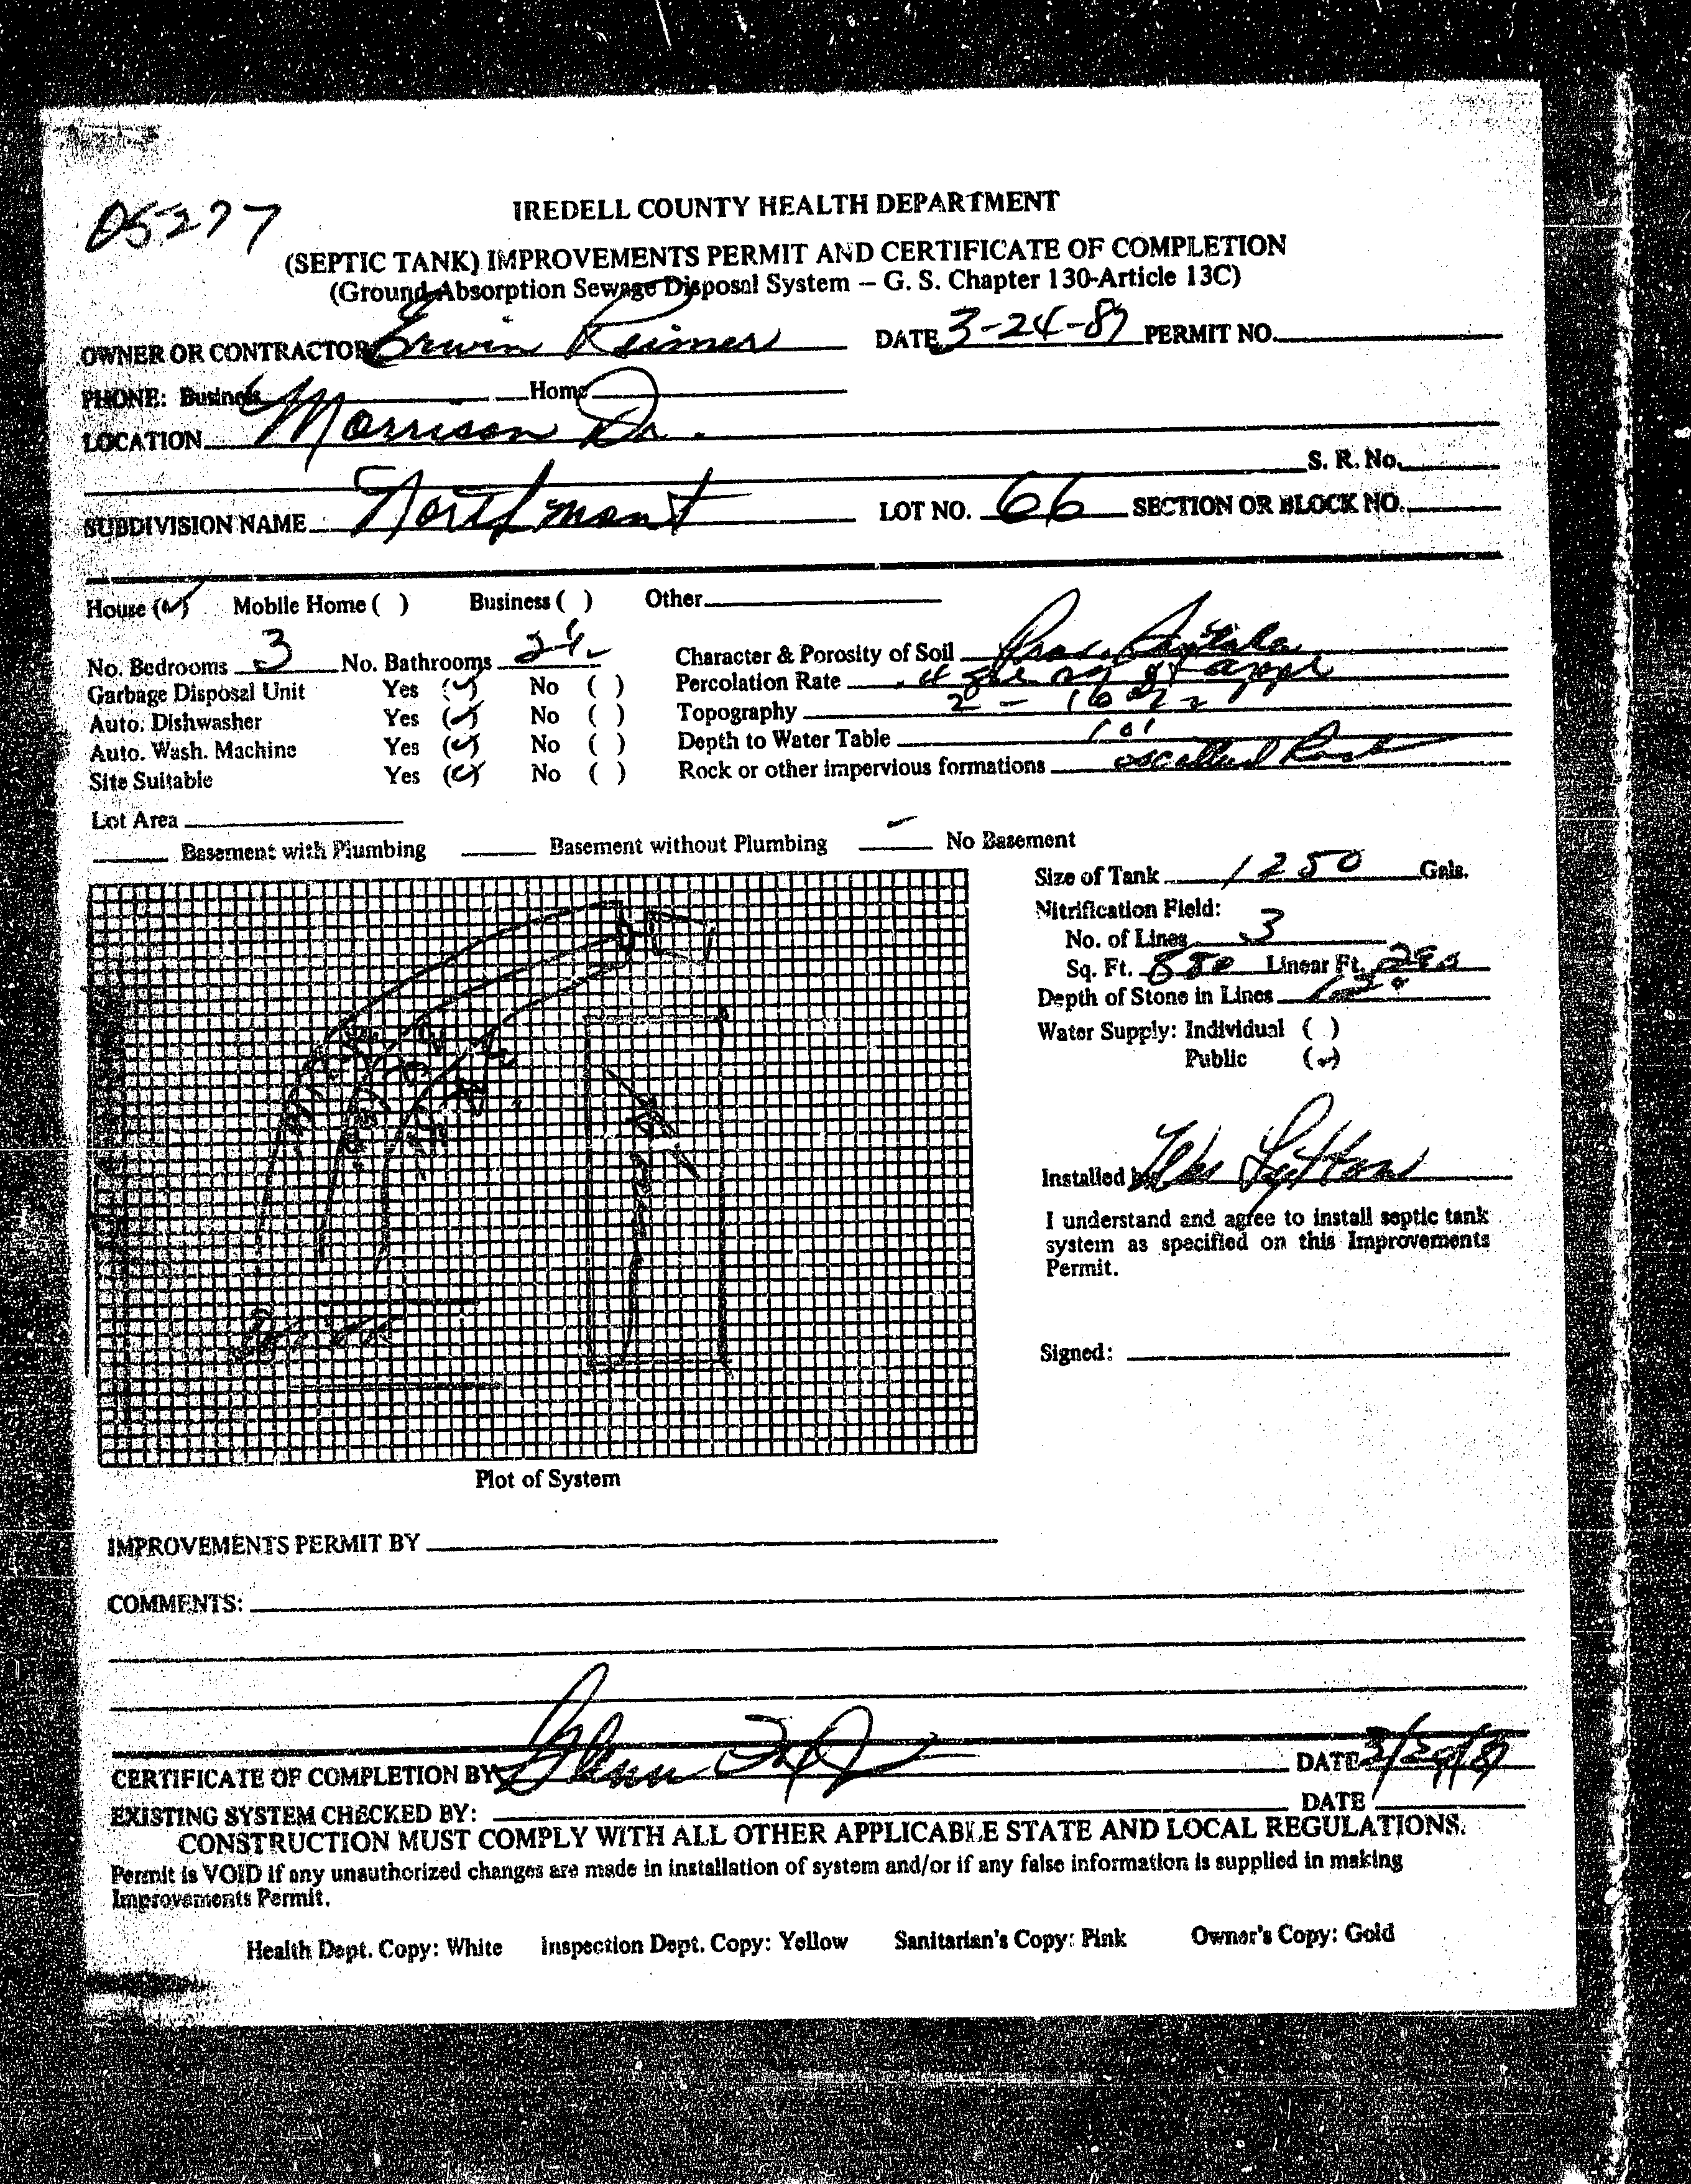 05277
IREDELL COUNTY HEALTH DEPARTMENT
(SEPTIC TANK) IMPROVEMENTS PERMIT AND CERTIFICATE OF COMPLETION
(Ground Absorption Sewage Disposal System – G. S. Chapter 130-Article 13C)
OWNER OR CONTRACTOR Erwin Reimer DATE 3-24-87 PERMIT NO.
PHONE: Business Home
LOCATION Morrison Dr.
S. R. No.
SUBDIVISION NAME Northmont LOT NO. 66 SECTION OR BLOCK NO.
House (✓) Mobile Home ( ) Business ( ) Other
No. Bedrooms 3 No. Bathrooms Character & Porosity of Soil
Garbage Disposal Unit Yes (✓) No ( ) Percolation Rate
Auto. Dishwasher Yes (✓) No ( ) Topography
Auto. Wash. Machine Yes (✓) No ( ) Depth to Water Table
Site Suitable Yes (✓) No ( ) Rock or other impervious formations
Lot Area
Basement with Plumbing Basement without Plumbing ✓ No Basement
Size of Tank 1250 Gals.
Nitrification Field:
No. of Lines 3
Sq. Ft. Linear Ft.
Depth of Stone in Lines 12"
Water Supply: Individual ( )
Public (✓)
Installed by
I understand and agree to install septic tank
system as specified on this Improvements
Permit.
Signed:
Plot of System
IMPROVEMENTS PERMIT BY
COMMENTS:
CERTIFICATE OF COMPLETION BY Glenn DATE
EXISTING SYSTEM CHECKED BY: DATE
CONSTRUCTION MUST COMPLY WITH ALL OTHER APPLICABLE STATE AND LOCAL REGULATIONS.
Permit is VOID if any unauthorized changes are made in installation of system and/or if any false information is supplied in making
Improvements Permit.
Health Dept. Copy: White Inspection Dept. Copy: Yellow Sanitarian's Copy: Pink Owner's Copy: Gold